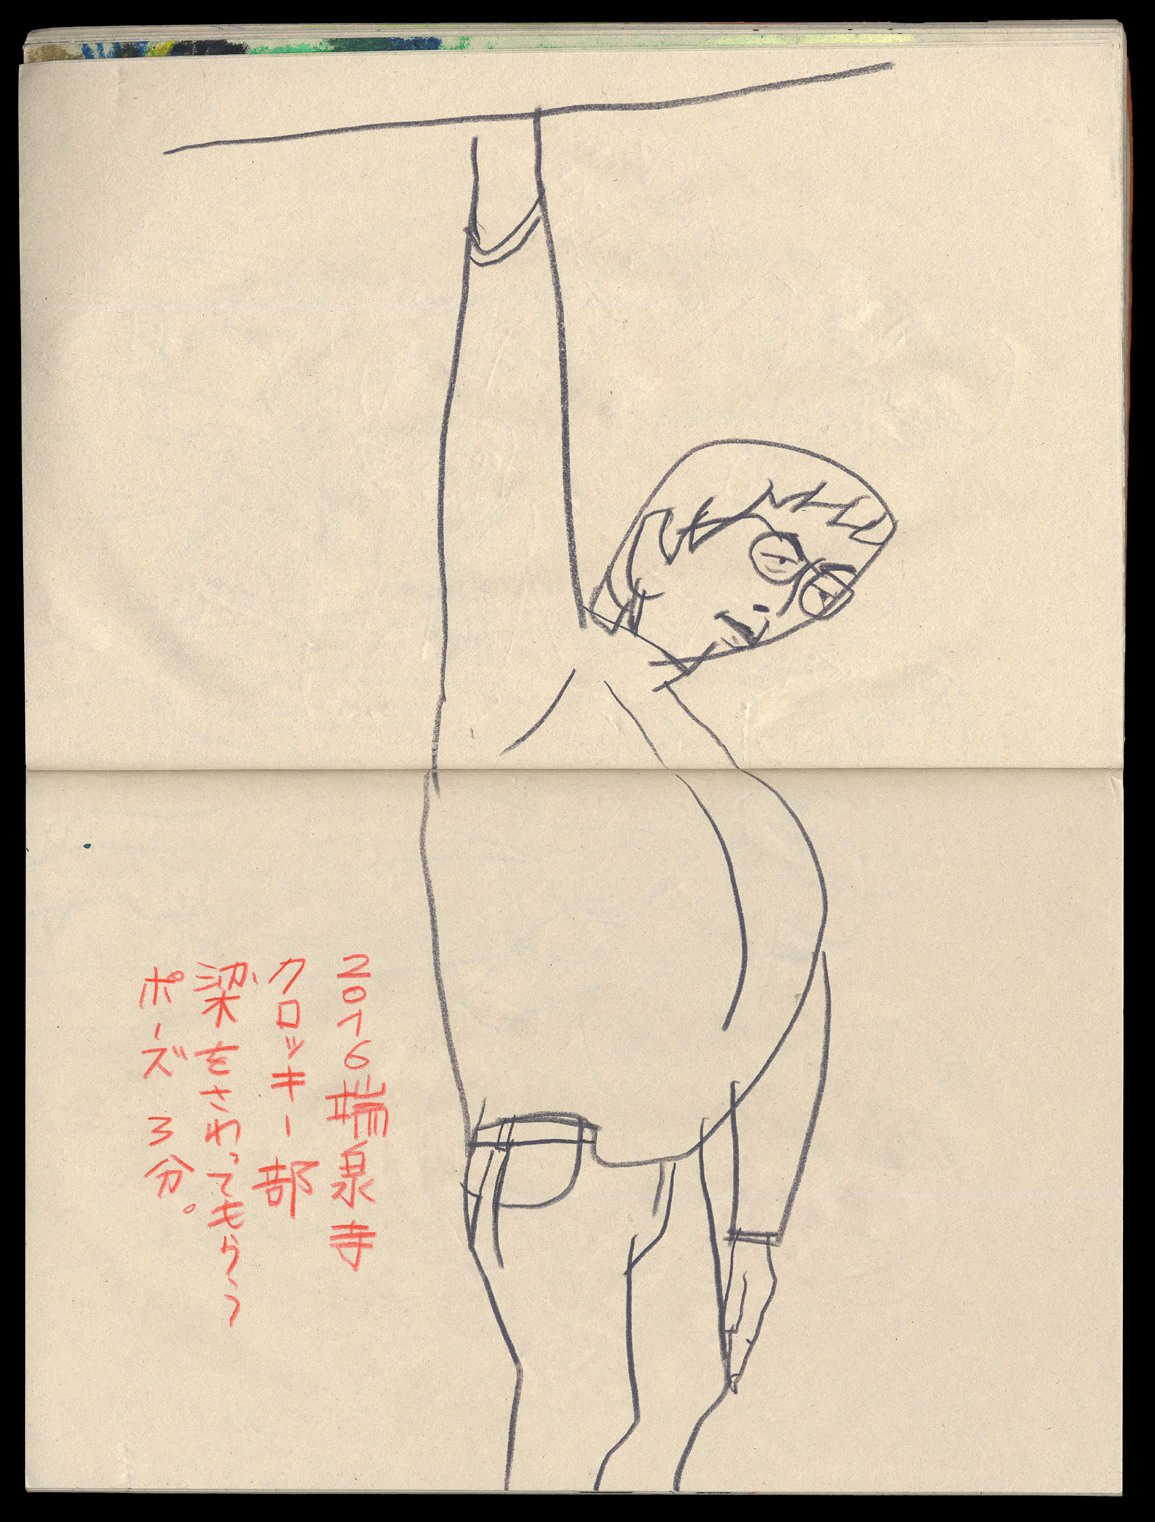 2016瑞泉寺
クロッキー部
梁をさわってもらう
ポーズ 3分。